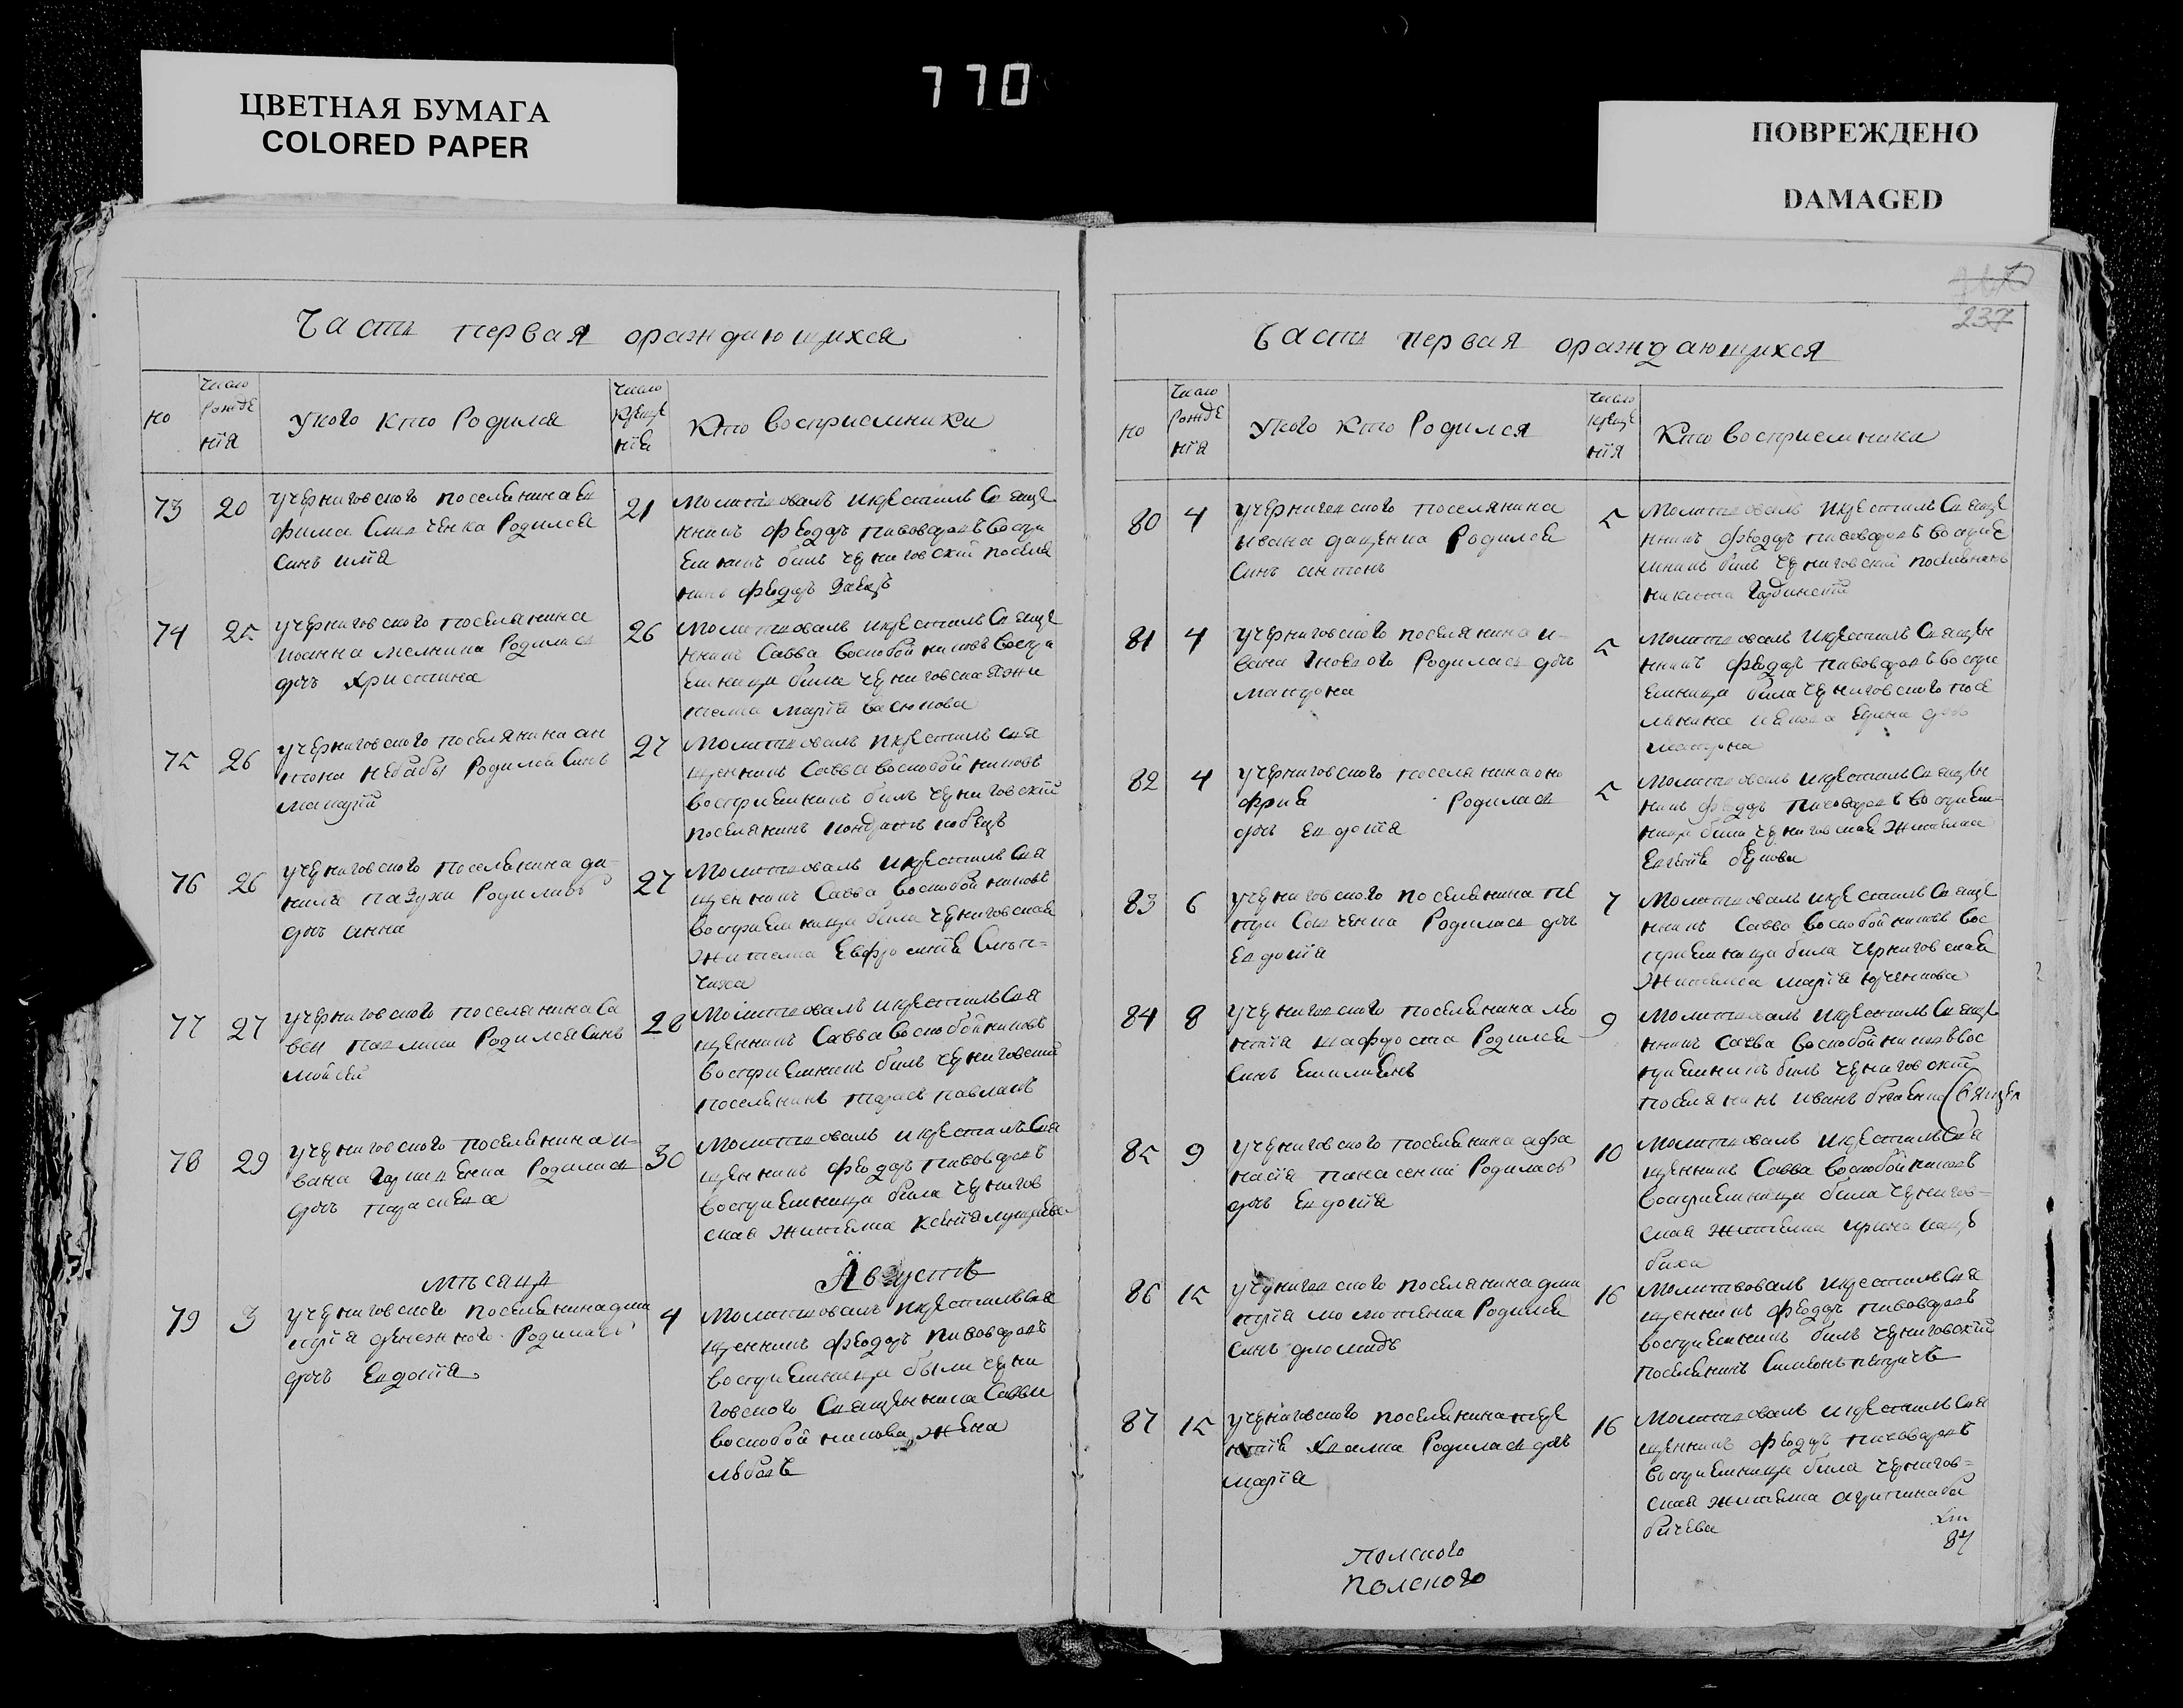 ЦВЕТНАЯ БУМАГА
COLORED PAPER
770
ПОВРЕЖДЕНО
DAMAGED
237
Часть первая ораждающихся
но
число рожде нія
У кого кто родился
число креще нія
Кто восприемники
73 20 21
У черниговского поселянина Ев
фима родился
синъ илія
Молитвовалъ икрестилъ Свяще
нникъ феодоръ пивоваровъ воспри
емникъ билъ черниговскій поселя
нинъ федоръ Заецъ
74 25 26
У черниговского поселянина
иоанна мелника родилась
дочъ христина
Молитвовалъ икрестилъ Свяще
нникъ Савва воскобойниковъ воспри
емница била черниговская жи
телка марія васюкова
75 26 27
У черниговского поселянина ан
тона небабы родился Синъ
макарій
Молитвовалъ икрестилъ Свя
щенникъ Савва воскобойниковъ
восприемникъ билъ черниговскій
поселянинъ кондратъ кобецъ
76 26 27
У черниговского поселянина да-
нила пазухи родилась
дочъ анна
Молитвовалъ икрестилъ Свя
щенникъ Савва воскобойниковъ
восприемница била черниговская
жителка Евфросинія
чиха
77 27 28
У черниговского поселянина Са
вви родился Синъ
мойсей
Молитвовалъ икрестилъ Свя
щенникъ Савва воскобойниковъ
восприемникъ билъ черниговскій
поселянинъ тарасъ павлакъ
78 29 30
У черниговского поселянина и-
вана родилась
дочъ параскева
Молитвовалъ икрестилъ Свя
щенникъ феодоръ пивоваровъ
восприемница била чернигов
ская жителка ксенія
мѣсяцъ Августъ
79 3 4
У черниговского поселянина дми
трія денежного родилась
дочъ Евдокія
Молитвовалъ икрестилъ Свя
щенникъ феодоръ пивоваровъ
восприемница были черни
говского Священника Савви
воскобойникова жена
любовъ
Часть первая ораждающихся
но
число рожде нія
У кого кто родился
число креще нія
Кто восприемники
80 4 5
У черниговского поселянина
ивана даценка родился
Синъ антонъ
Молитвовалъ икрестилъ Свяще
нникъ феодоръ пивоваровъ восприе
мникъ билъ черниговскій поселянинъ
никита
81 4 5
У черниговского поселянина и-
вана гноевого родилась дочъ
матрона
Молитвовалъ икрестилъ Священ
никъ феодоръ пивоваровъ воспри
емница била черниговского посе
лянина дочъ
матрона
82 4 5
У черниговского поселянина оно
фрия родилась
дочъ евдокія
Молитвовалъ икрестилъ Священ
никъ феодоръ пивоваровъ восприем-
ница била черниговская жителка
83 6 7
У черниговского поселянина пе
тра родилась дочъ
Евдокія
Молитвовалъ икрестилъ Свяще
нникъ Савва воскобойниковъ вос
приемница била черниговская
жителка марія юрченкова
84 8 9
У черниговского поселянина лео
нтія шафроста родился
Синъ Емиліянъ
Молитвовалъ икрестилъ Свяще
нникъ Савва воскобойниковъ вос
приемникъ билъ черниговскій
поселянинъ иванъ
85 9 10
У черниговского поселянина афа
насія панасенка родилась
дочъ Евдокія
Молитвовалъ икрестилъ Свя
щенникъ Савва воскобойниковъ
восприемница била чернигов-
ская жителка ирина кацю
биха
86 15 16
У черниговского поселянина дми
трія родился
Синъ диомидъ
Молитвовалъ икрестилъ Свя
щенникъ феодоръ пивоваровъ
восприемникъ билъ черниговскій
поселянинъ Симеонъ
87 15 16
У черниговского поселянина тере
нтія родилась дочъ
марія
Молитвовалъ икрестилъ Свя
щенникъ феодоръ пивоваровъ
восприемница била чернигов-
ская жителка агрипина ба
бичева
полского
полского
84